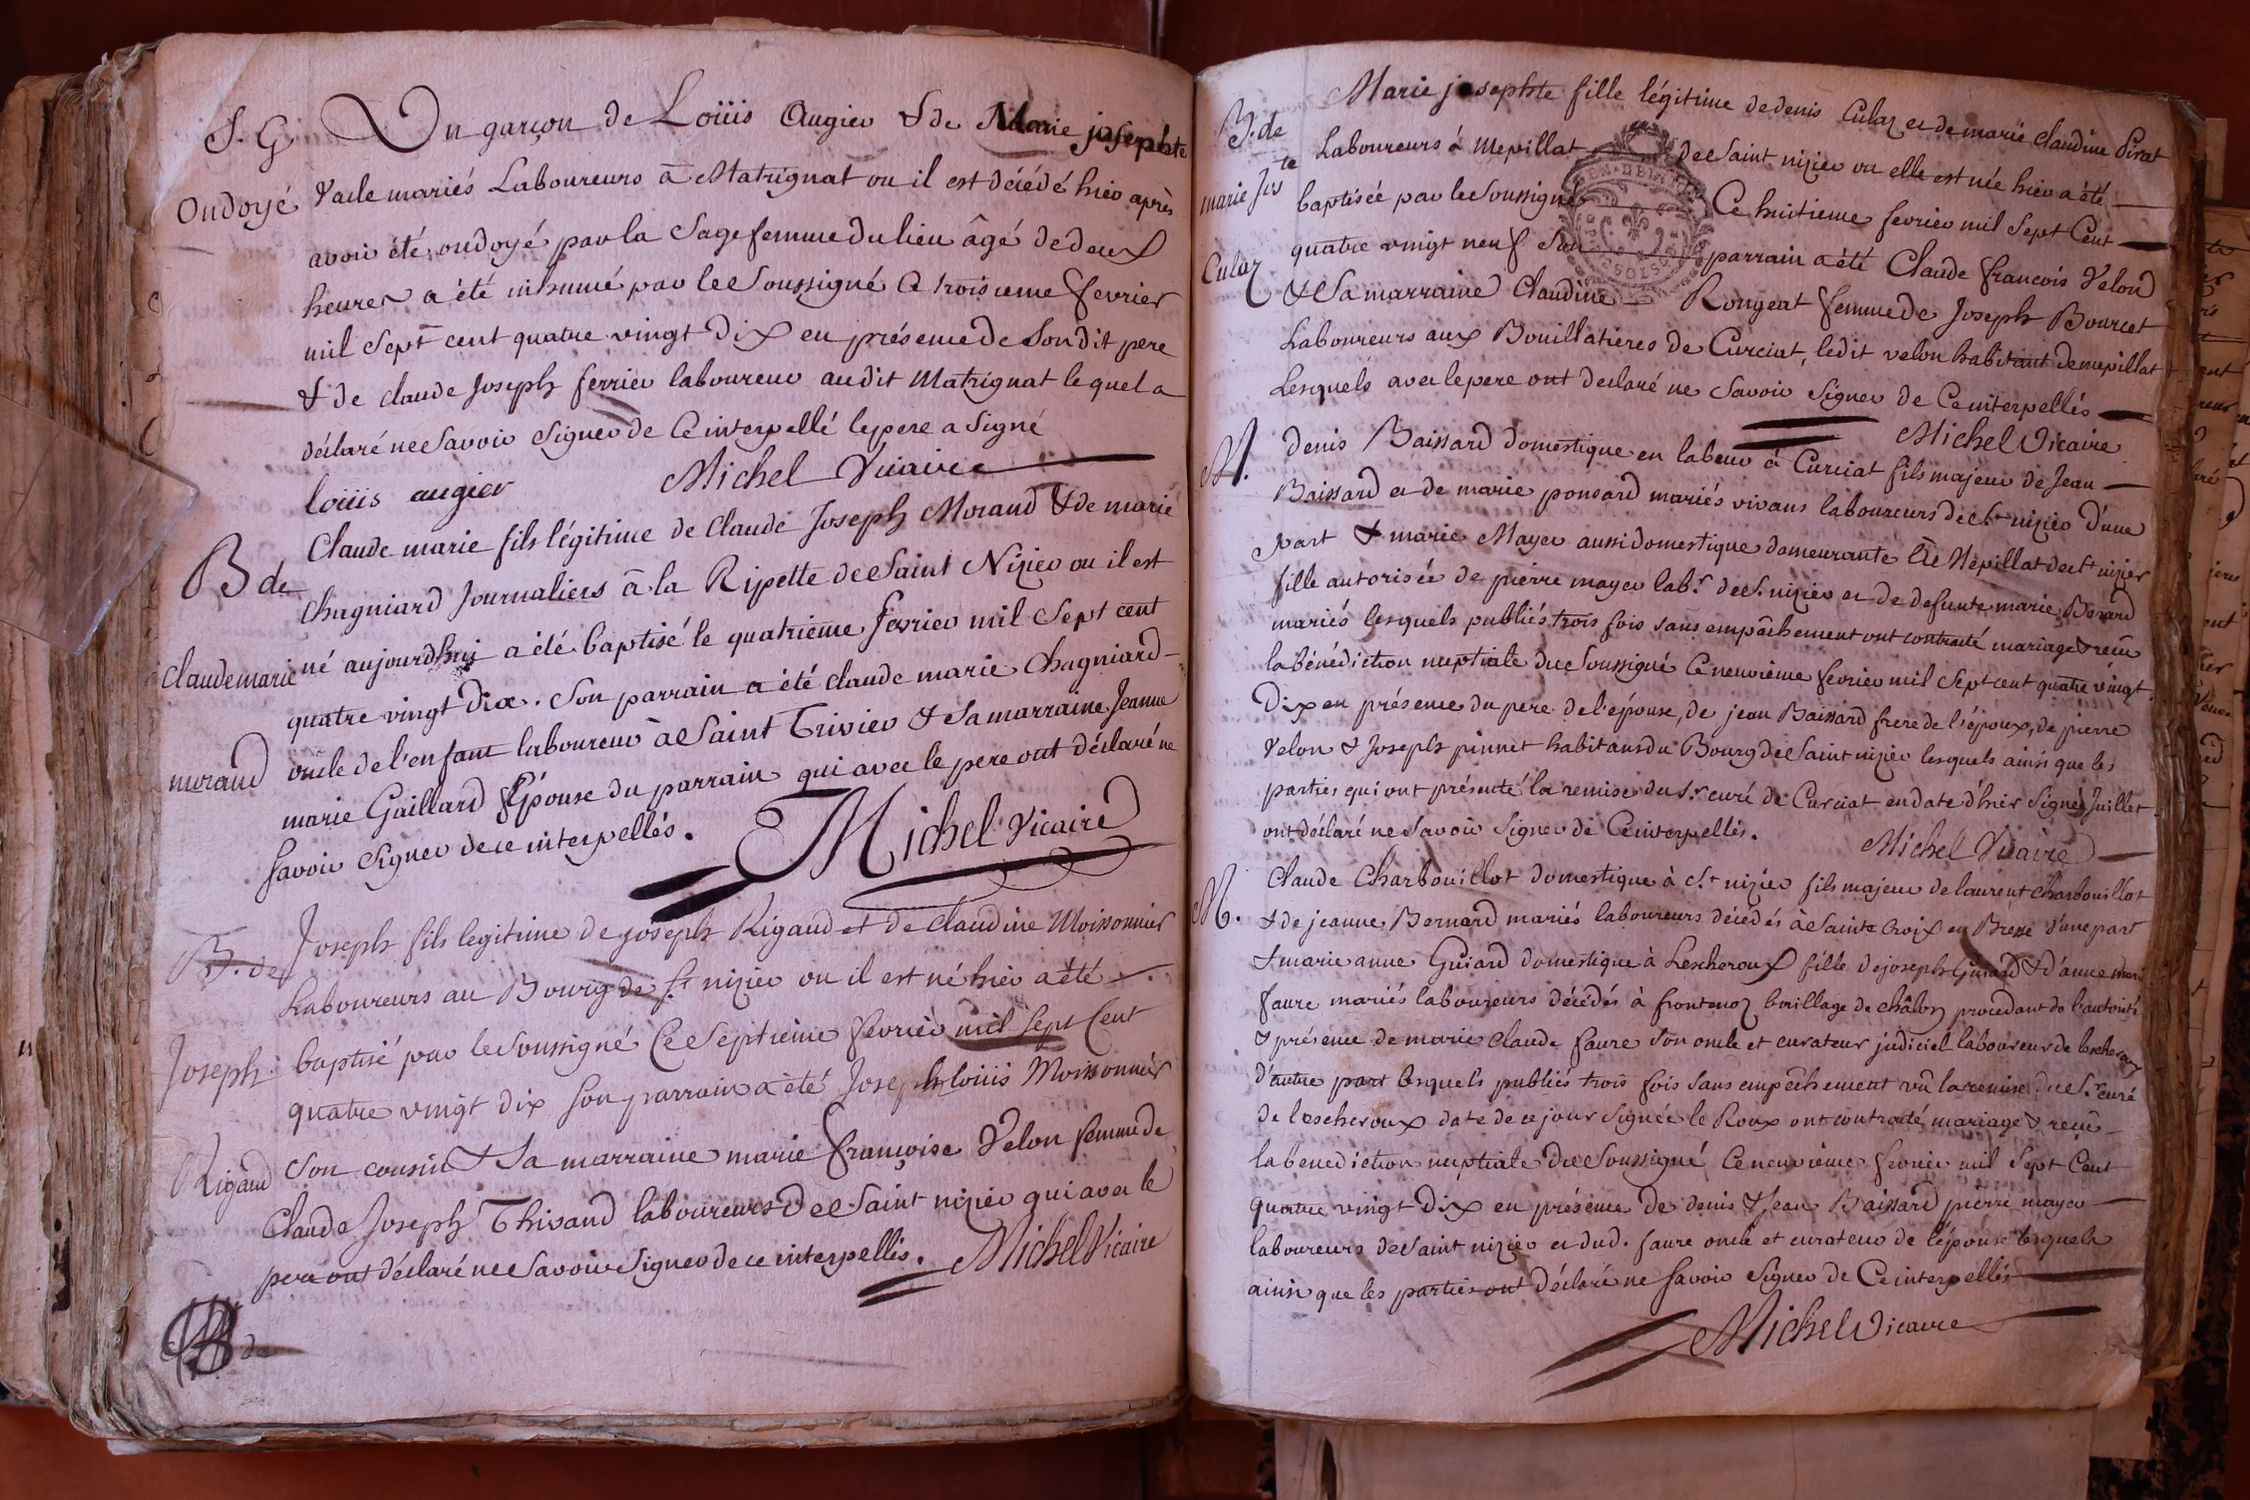 S. G Un garçon de Loüis Augier & de Marie josephte
Ondoyé
Vacle mariés Laboureurs à Matrignat ou il est décédé hier après
avoir été ondoyé par la Sage femme du lieu âgé de deux
heures a été inhumé par le Soussigné Ce troisieme fevrier
mil Sept cent quatre vingt Dix en présence de Son dit pere
& de claude Joseph ferrier laboureur au dit Matrignat lequel a
déclaré ne Savoir Signer de Ce interpellé le pere a Signé
loüis augier Michel Vicaire
B de
claude marie
morand
Claude marie fils légitime de Claude Joseph Morand & de marie
Chagniard Journaliers à la Ripette de Saint Nizier ou il est
né aujourdhuy a été baptisé le quatrieme fevrier mil Sept cent
quatre vingt Dix. Son parrain a été claude marie Chagniard
oncle de l'enfant laboureur à Saint Trivier & Sa marraine Jeanne
marie Gaillard Épouse du parrain qui avec le pere ont déclaré ne
Savoir Signer de ce interpellés.
Michel Vicaire
B. de
Joseph
Rigaud
Joseph fils legitime de joseph Rigaud et de Claudine Moissonnier
Laboureurs au Bourg de St nizier ou il est né hier a été
baptisé par le Soussigné Ce Septieme fevrier mil Sept Cent
quatre vingt dix Son parrain a été Joseph loüis Moissonnier
Son cousin & Sa marraine marie françoise Velon femme de
Claude Joseph Thivaud laboureurs de Saint nizier qui avec le
pere ont déclaré ne Savoir Signer de ce interpellés. Michel Vicaire
B de
B. de
marie Jos te
Cular
Marie josephte fille légitime de denis Cular et de marie Claudine Pirat
Laboureurs à Mepillat de Saint nizier ou elle est née hier a été
baptisée par le Soussigné Ce huitieme fevrier mil Sept Cent
quatre vingt neuf Son parrain a été Claude francois Velon
& Sa marraine Claudine Rongeat femme de Joseph Bourcet
Laboureurs aux Bouillatieres de Curciat, ledit velon habitant de mepillat
Lesquels avec le pere ont declaré ne Savoir Signer de Ce interpellés
Michel Vicaire
M.
Denis Baissard domestique en labeur à Curciat fils majeur de Jean
Baissard et de marie ponsard mariés vivans laboureurs de St nizier D'une
part & marie Mayer aussi domestique demeurante à Mepillat de St nizier
fille autorisée de pierre mayer labr. de S. nizier et de defunte marie Berard
mariés lesquels publiés trois fois sans empâchement ont contracté mariage & reçu
la bénédiction nuptiale du Soussigné Ce neuvieme fevrier mil Sept cent quatre vingt
Dix en présence du pere de l'épouse, de jean Baissard frere de l'époux, de pierre
Velon & Joseph pinnet habitans du Bourg de Saint nizier lesquels ainsi que les
parties qui ont présenté la remise du Sr curé de Curciat en date d'hier Signée Juillet
ont déclaré ne Savoir Signer de Ce interpellés.
Michel Vicaire
M.
Claude Charbouillot domestique à St nizier fils majeur de laurent Charbouillot
& de jeanne Bernard mariés laboureurs décédés à Sainte Croix en Bresse d'une part
& marie anne Guiard domestique à Lescheroux fille de joseph Guiard & d'anne marie
faure mariés laboureurs décédés à frontenoz de chalon procedant de l'autorité
& présence de marie Claude faure Son oncle et curateur judiciel laboureur de lescheroux
d'autre part lesquels publiés trois fois Sans empêchement vû la remise du Sr. curé
de lescheroux date de ce jour Signée le Roux ont contracté mariage & reçu
la benediction nuptiale du Soussigné Ce neuvieme fevrier mil Sept Cent
quatre vingt Dix en présence de denis & Jean Baissard pierre mayer
laboureurs de Saint nizier et dud. faure oncle et curateur de l'épouse lesquels
ainsi que les parties ont déclaré ne Savoir Signer de Ce interpellés
Michel Vicaire